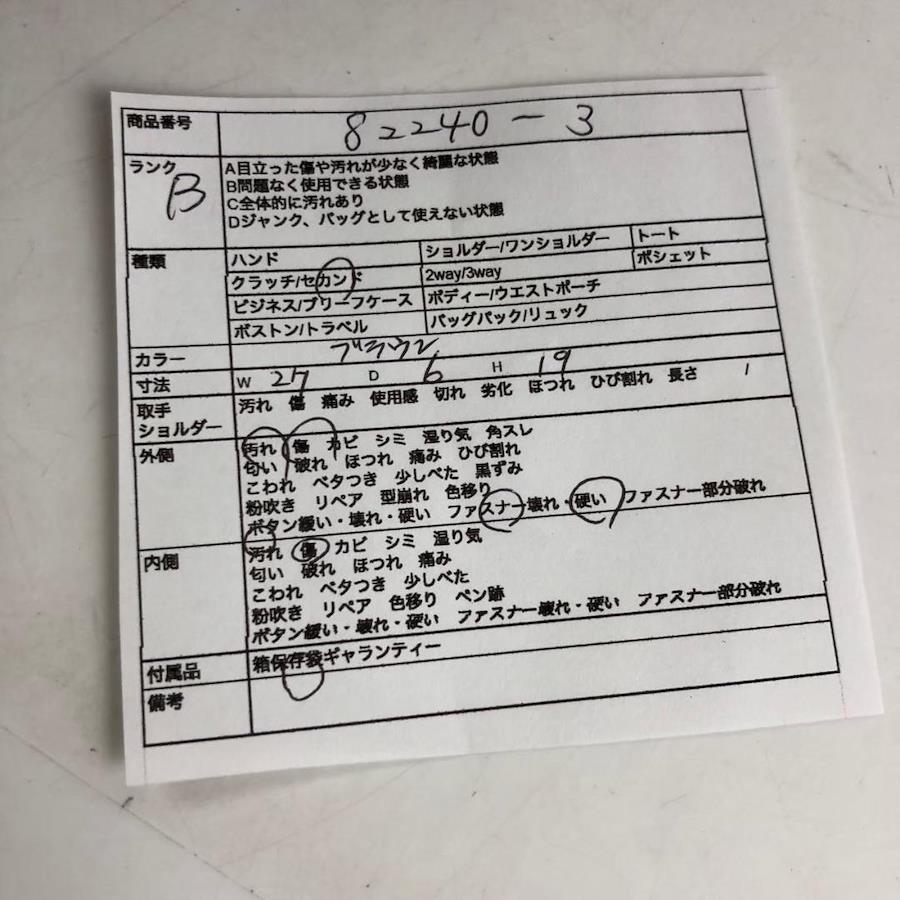 商品番号 82240-3
ランク B
A目立った傷や汚れが少なく綺麗な状態
B問題なく使用できる状態
C全体的に汚れあり
Dジャンク、バッグとして使えない状態
種類 ハンド ショルダー/ワンショルダー トート
クラッチ/セカンド 2way/3way ポシェット
ビジネス/ブリーフケース ボディー/ウエストポーチ
ボストン/トラベル バッグパック/リュック
カラー ブラウン
寸法 W 27 D 6 H 19
取手 汚れ 傷 痛み 使用感 切れ 劣化 ほつれ ひび割れ 長さ /
ショルダー
外側 汚れ 傷 カビ シミ 湿り気 角スレ
匂い 破れ ほつれ 痛み ひび割れ
こわれ ベタつき 少しべた 黒ずみ
粉吹き リペア 型崩れ 色移り
ボタン緩い・壊れ・硬い ファスナー壊れ・硬い ファスナー部分破れ
内側 汚れ 傷 カビ シミ 湿り気
匂い 破れ ほつれ 痛み
こわれ ベタつき 少しべた
粉吹き リペア 色移り ペン跡
ボタン緩い・壊れ・硬い ファスナー壊れ・硬い ファスナー部分破れ
付属品 箱保存袋ギャランティー
備考